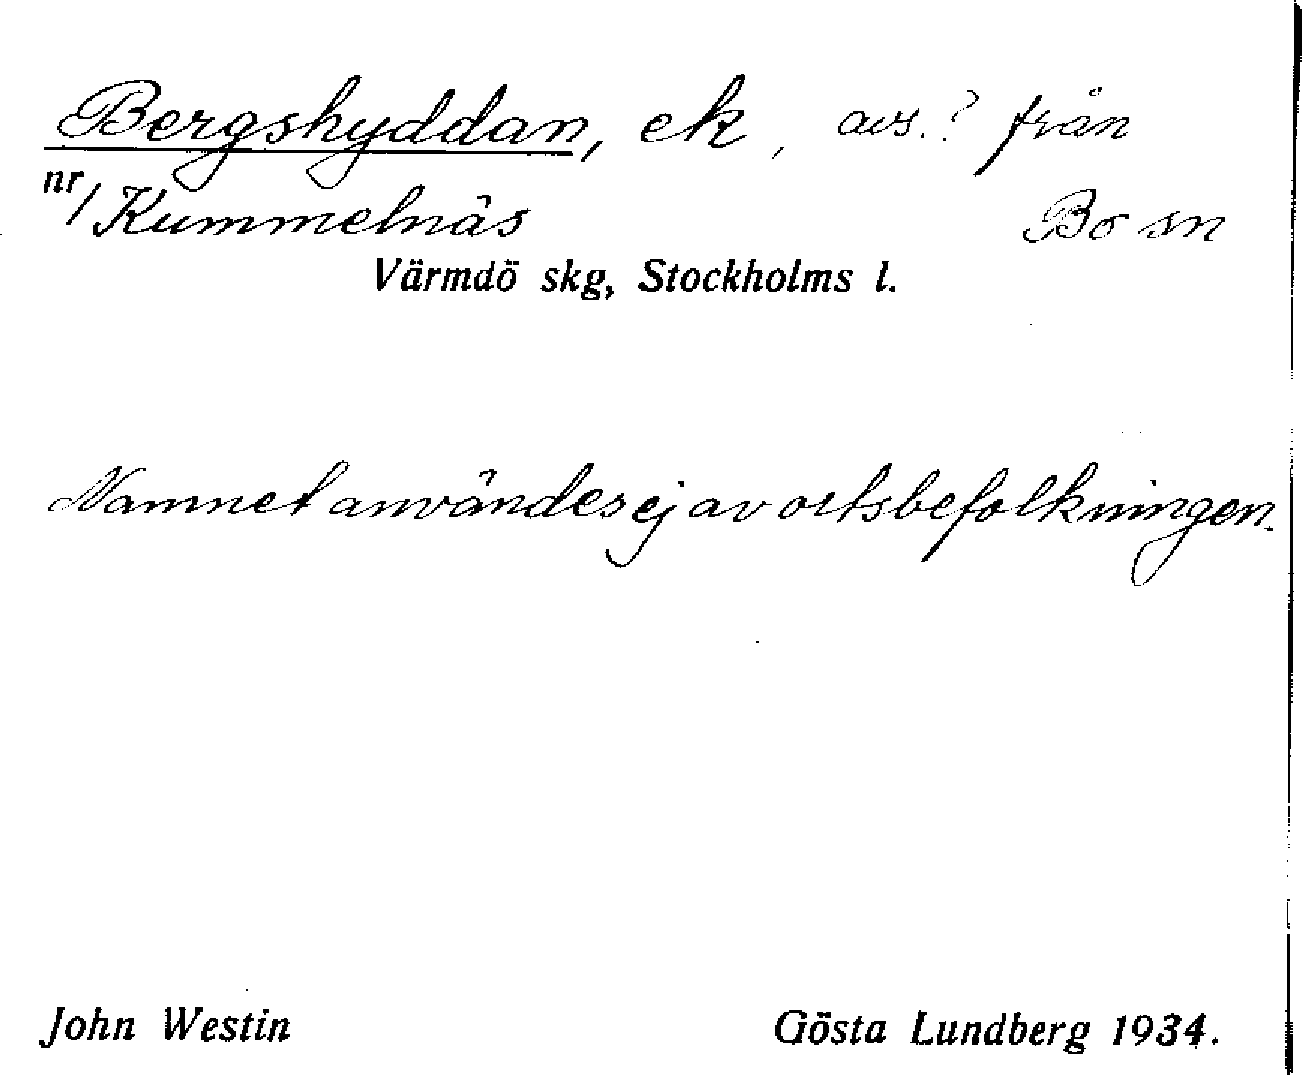 Bergshyddan, ek, avs.? från
nr/ Kummelnäs Bo sn
Värmdö skg, Stockholms l.
Namnet användes ej av ortsbefolkningen.
John Westin Gösta Lundberg 1934.